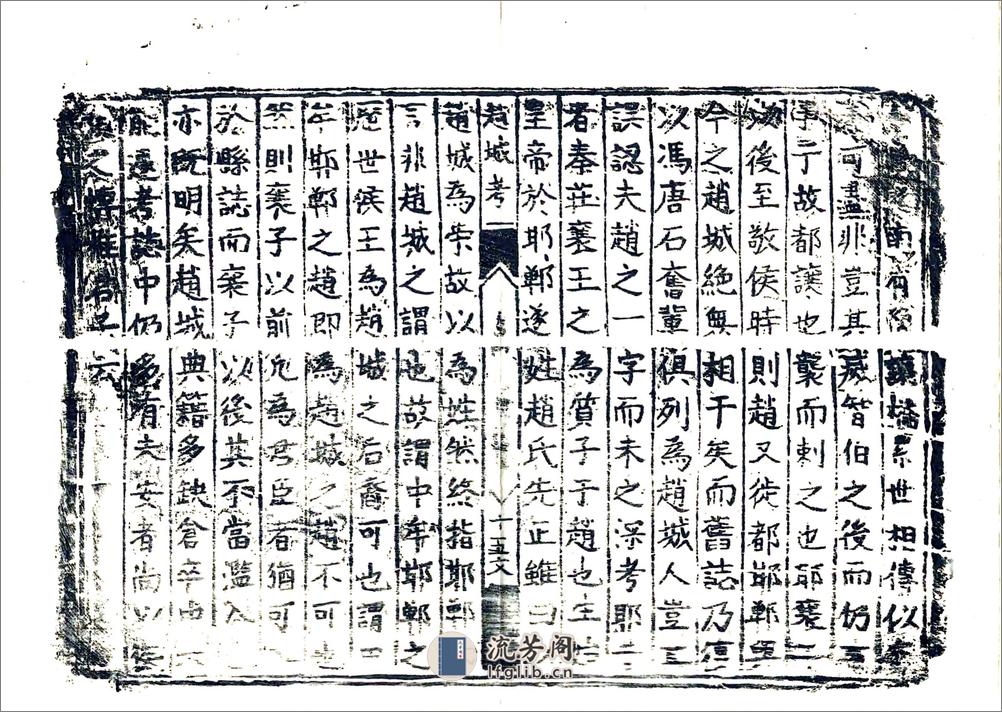 說南有豫讓橋系世相傳似
可盡非豈其滅智伯之後而仍
事于故都讓也襲而刺之也耶襄
後至敬侯時則趙又徙都邯鄲更
今之趙城絕無相干矣而舊誌乃
以馮唐石奮輩俱列為趙城人豈
誤認夫趙之一字而未之深考耶
者秦莊襄王之為質子于趙也生
皇帝於邯鄲遂姓趙氏先正雖曰
趙城考 十五 文
趙城為宗故以為姓然終指邯鄲
言非趙城之謂也故謂中牟邯鄲之
歷世侯王為趙城之后裔可也謂
牟邯鄲之趙即為趙城之趙不可
然則襄子以前凡為君臣者猶可
於縣誌而襄子以後其不當濫入
亦既明矣趙城典籍多缺倉卒中
能遍考誌中仍多有夫安者尚以俟
之博雅君子云
流芳阁
lfglib.cn